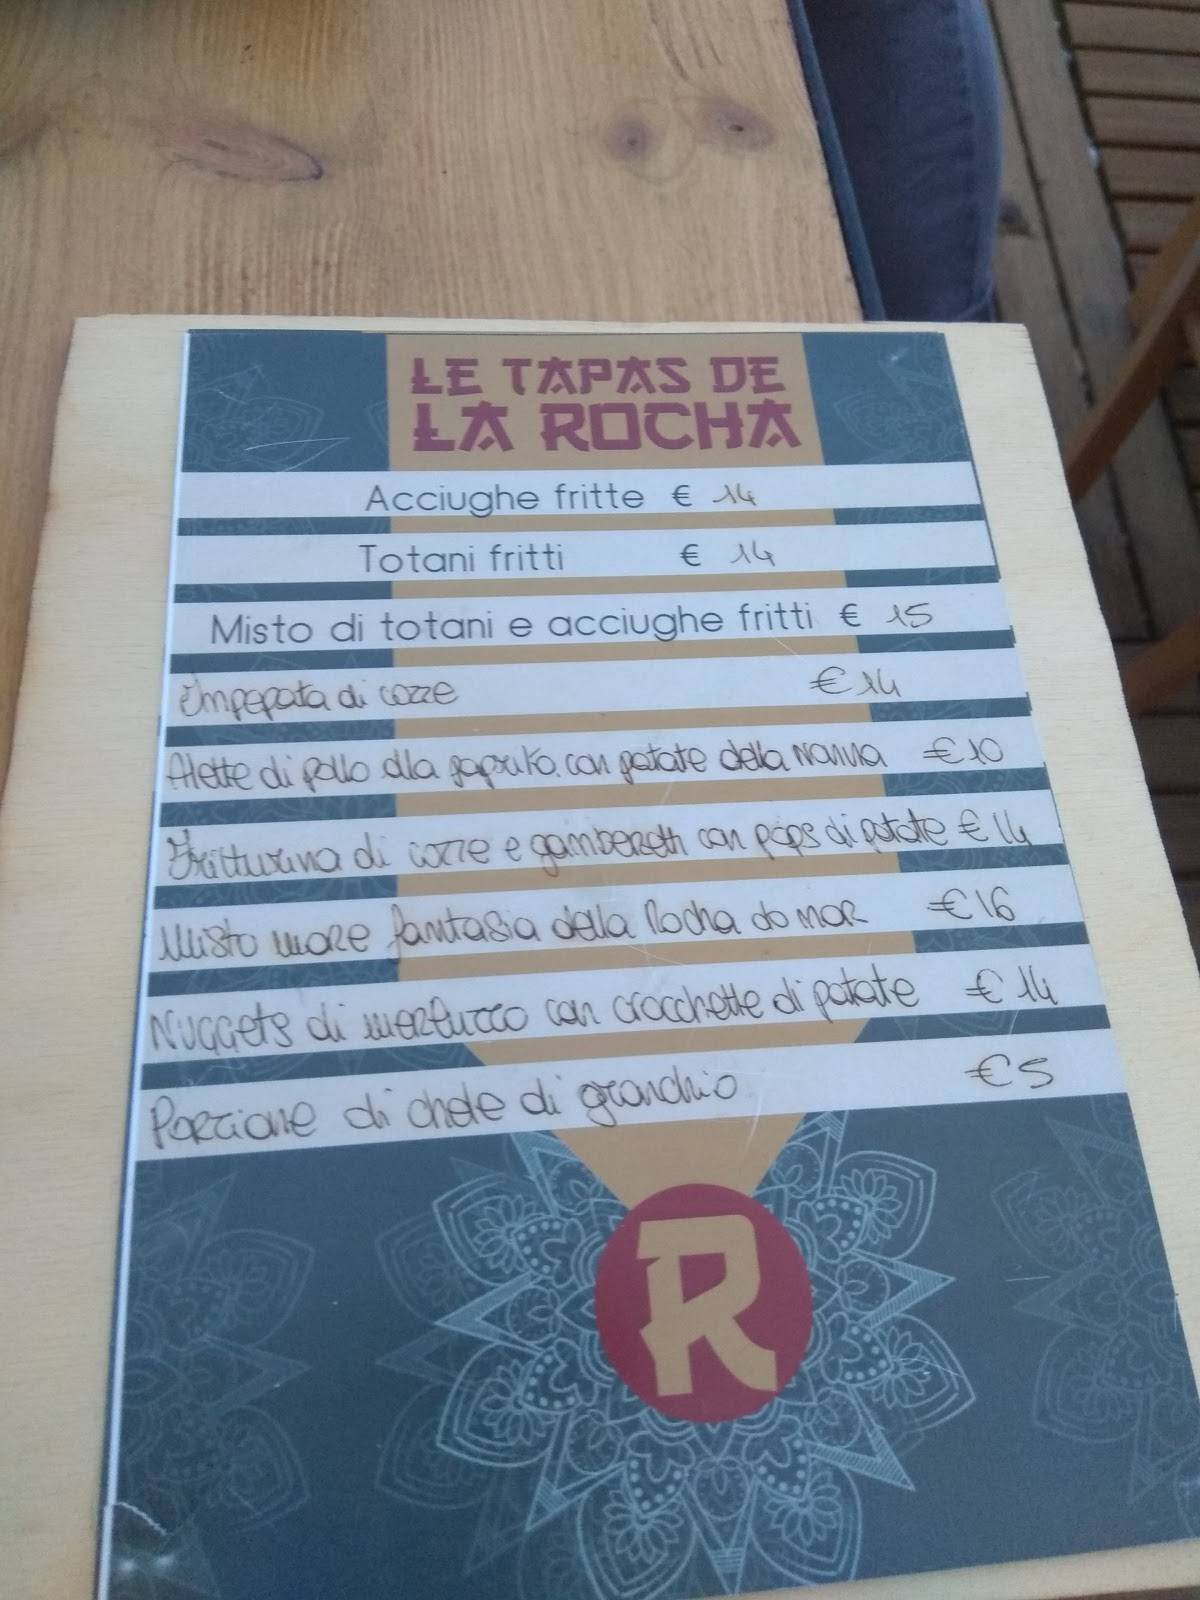 LE TAPAS DE
LA ROCHA
Acciughe fritte € 14
Totani fritti € 14
Misto di totani e acciughe fritti € 15
Impepata di cozze € 14
Alette di pollo alla paprika con patate della nonna € 10
Fritturina di cozze e gamberetti con pops di patate € 14
Misto mare fantasia della Rocha do mar € 16
Nuggets di merluzzo con crocchette di patate € 14
Porzione di chele di granchio € 5
R